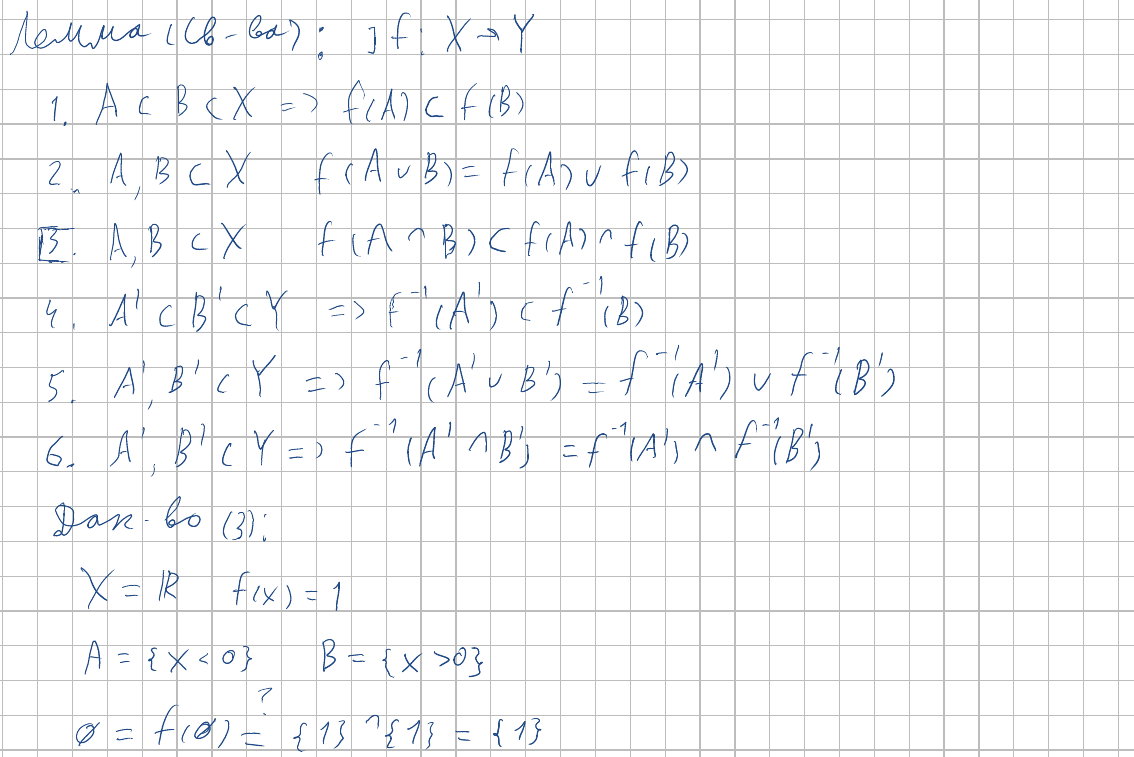 Лемма (св-ва): ] f: X → Y
1. A ⊂ B ⊂ X => f(A) ⊂ f(B)
2. A, B ⊂ X f(A ∪ B) = f(A) ∪ f(B)
3. A, B ⊂ X f(A ∩ B) ⊂ f(A) ∩ f(B)
4. A' ⊂ B' ⊂ Y => f⁻¹(A') ⊂ f⁻¹(B)
5. A', B' ⊂ Y => f⁻¹(A' ∪ B') = f⁻¹(A') ∪ f⁻¹(B')
6. A', B' ⊂ Y => f⁻¹(A' ∩ B') = f⁻¹(A') ∩ f⁻¹(B')
Док-во (3):
X = ℝ f(x) = 1
A = {x < 0} B = {x > 0}
?
∅ = f(∅) = {1} ∩ {1} = {1}